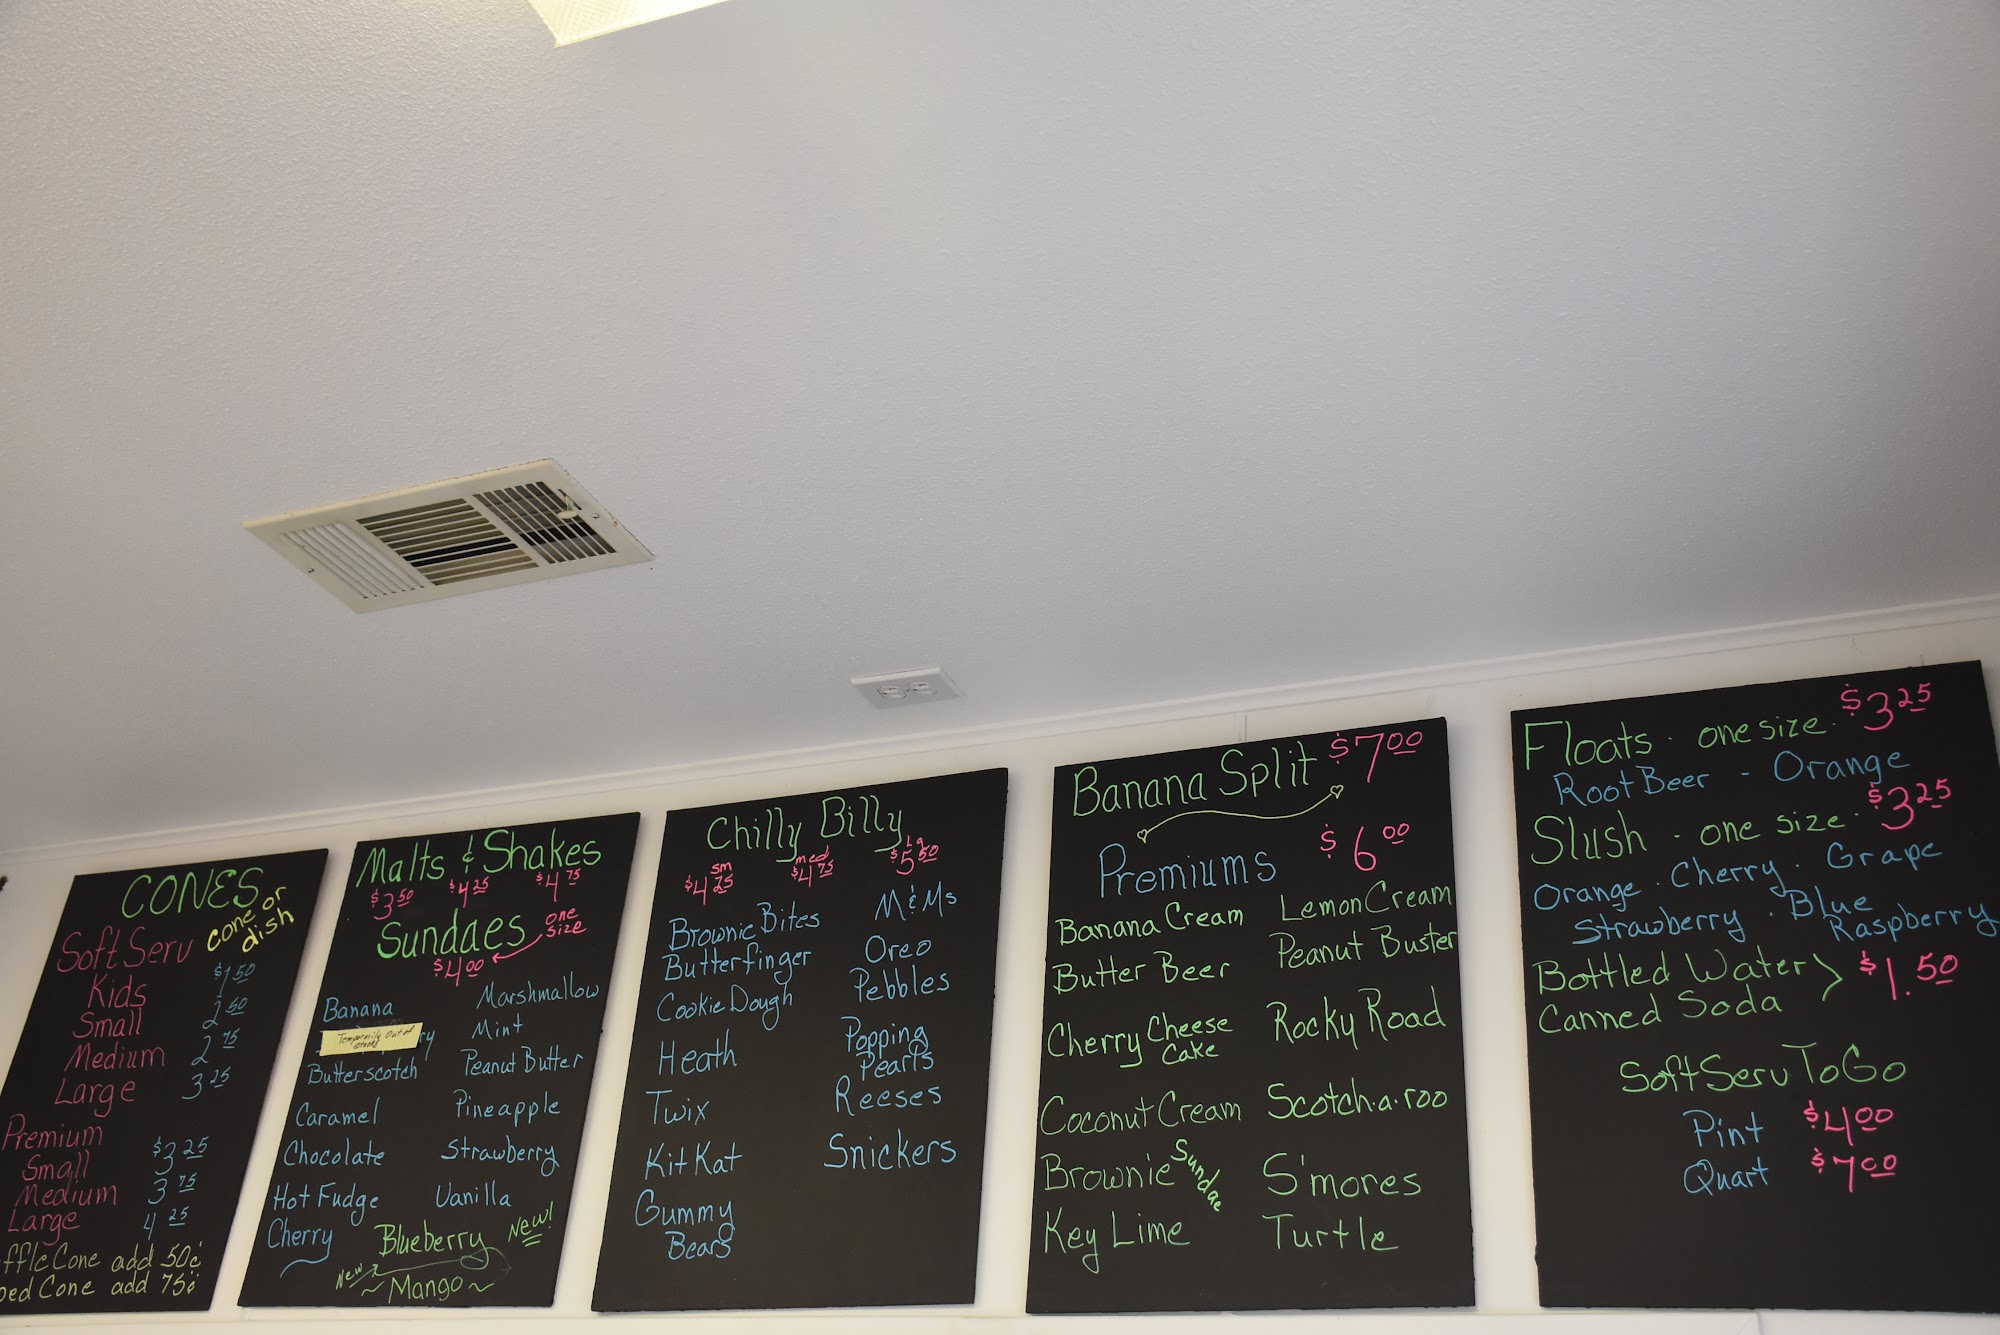 CONES
cone or
dish
Soft Serv
Kids $1.50
Small 2 50
Medium 2 75
Large 3 25
Premium
Small $3 25
Medium 3 75
Large 4 25
Cone add 50¢
Cone add 75¢
Malts & Shakes
$3 50 $4 25 $4 75
Sundaes one
size
$4 00
Banana
Temporarily Out of
Stock
Butterscotch
Caramel
Chocolate
Hot Fudge
Cherry
Marshmallow
Mint
Peanut Butter
Pineapple
Strawberry
Vanilla
Blueberry New!
New
~Mango~
Chilly Billy
sm med Lg
$4 25 $4 75 $5 50
Brownie Bites
Butterfinger
Cookie Dough
Heath
Twix
Kit Kat
Gummy
Bears
M&Ms
Oreo
Pebbles
Popping
Pearls
Reeses
Snickers
Banana Split $7 00
Premiums $6 00
Banana Cream
Butter Beer
Cherry Cheese
Cake
Coconut Cream
Brownie Sundae
Key Lime
Lemon Cream
Peanut Buster
Rocky Road
Scotch-a-roo
S'mores
Turtle
Floats - one size - $3 25
Root Beer - Orange
Slush - one size - $3 25
Orange . Cherry . Grape
Strawberry . Blue
Raspberry
Bottled Water > $1.50
Canned Soda
Soft Serv To Go
Pint $4 00
Quart $7 00